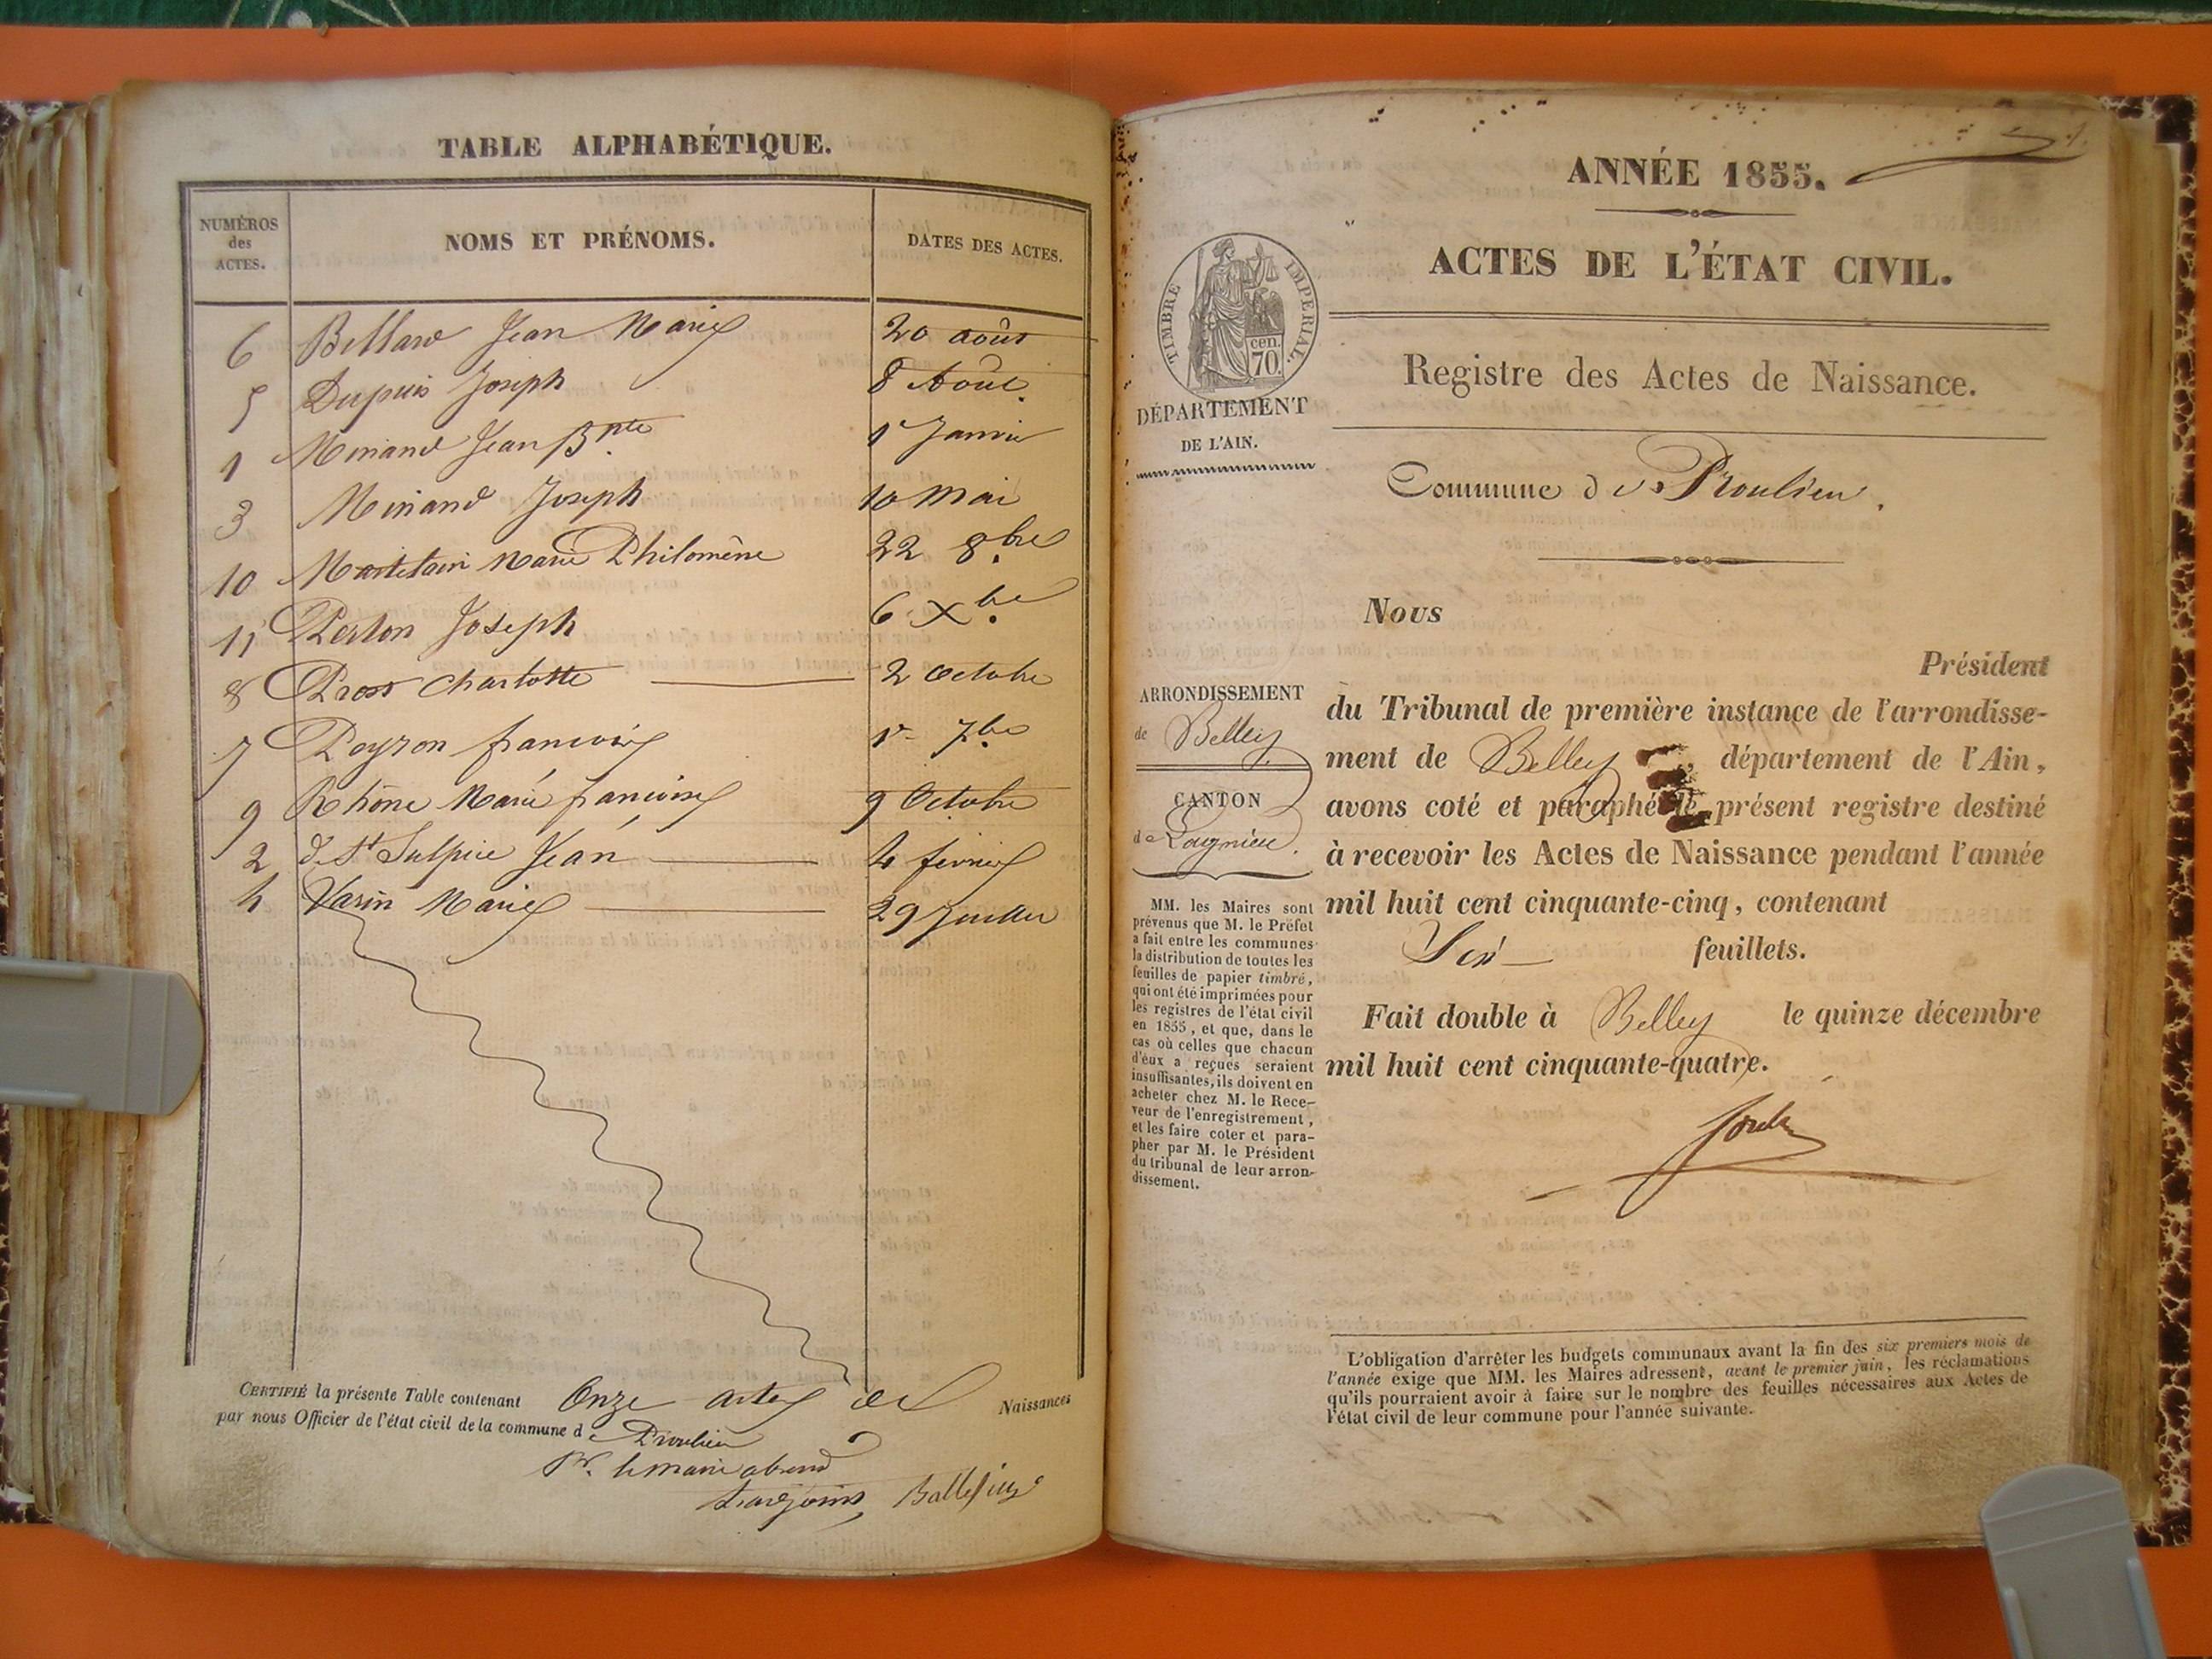 TABLE ALPHABÉTIQUE.
NUMÉROS des ACTES. NOMS ET PRÉNOMS. DATES DES ACTES.
6 Bellard Jean Marie 20 août
5 Dupuis Joseph 8 Août.
1 Minand Jean Bpte 1r Janvier
3 Minand Joseph 10 Mai
10 Marie Philomène 22 8bre
11 Joseph 6 Xbre
8 Charlotte 2 Octobre
7 Peyron françoise 1r 7bre
9 Rhône Marie françoise 9 Octobre
2 de St Sulpice Jean 4 février
4 Varin Marie 29 Juillet
CERTIFIÉ la présente Table contenant Onze actes de Naissances
par nous Officier de l'état civil de la commune de Proulieu
Pr. le maire absent
ANNÉE 1855.
ACTES DE L'ÉTAT CIVIL.
TIMBRE IMPERIAL.
cen.
70.
Registre des Actes de Naissance.
DÉPARTEMENT
DE L'AIN.
Commune de Proulieu.
Nous
Président
ARRONDISSEMENT
de Belley
CANTON
de Lagnieu.
du Tribunal de première instance de l'arrondisse-
ment de Belley, département de l'Ain,
avons coté et paraphé le présent registre destiné
à recevoir les Actes de Naissance pendant l'année
mil huit cent cinquante-cinq, contenant
Six feuillets.
Fait double à Belley le quinze décembre
mil huit cent cinquante-quatre.
MM. les Maires sont
prévenus que M. le Préfet
a fait entre les communes
la distribution de toutes les
feuilles de papier timbré,
qui ont été imprimées pour
les registres de l'état civil
en 1855, et que, dans le
cas où celles que chacun
d'eux a reçues seraient
insuffisantes, ils doivent en
acheter chez M. le Rece-
veur de l'enregistrement,
et les faire coter et para-
pher par M. le Président
du tribunal de leur arron-
dissement.
L'obligation d'arrêter les budgets communaux avant la fin des six premiers mois de
l'année exige que MM. les Maires adressent, avant le premier juin, les réclamations
qu'ils pourraient avoir à faire sur le nombre des feuilles nécessaires aux Actes de
l'état civil de leur commune pour l'année suivante.